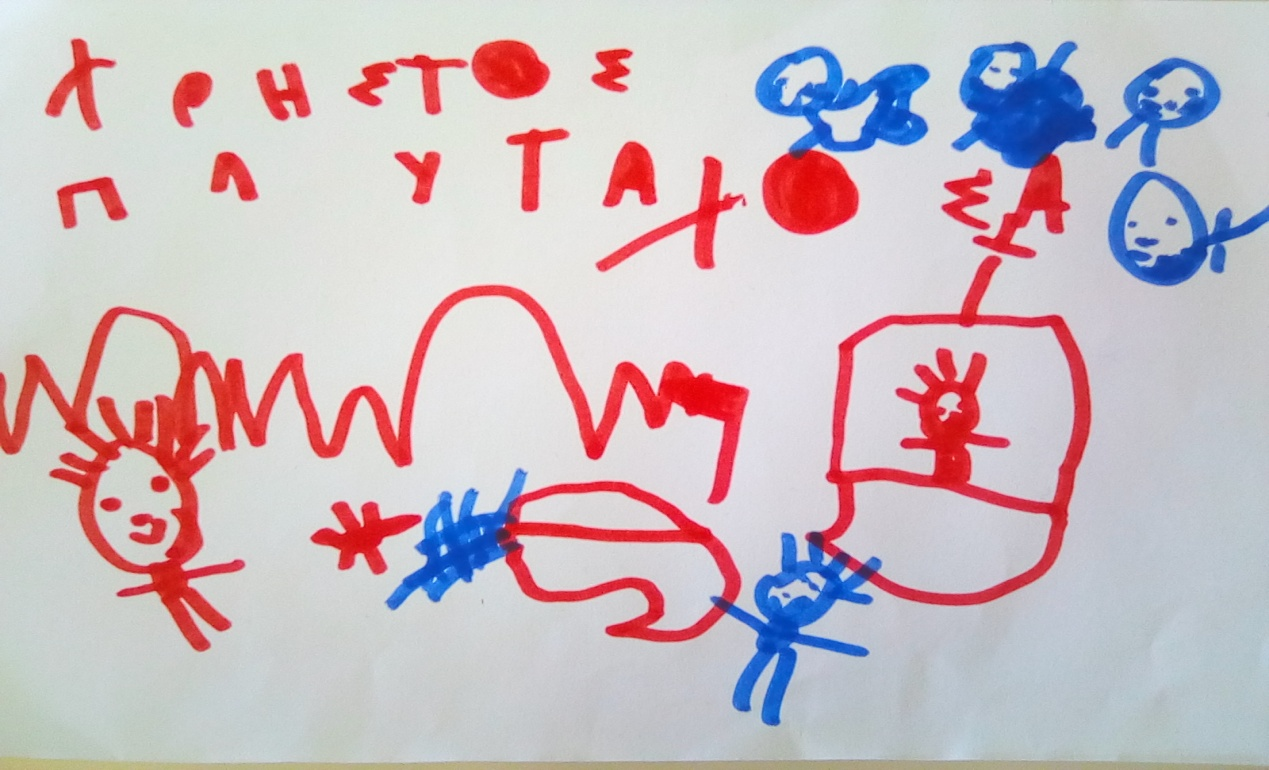 ΧΡΗΣΤΟΣ
ΠΛΥΤΑΧΟΣΑ